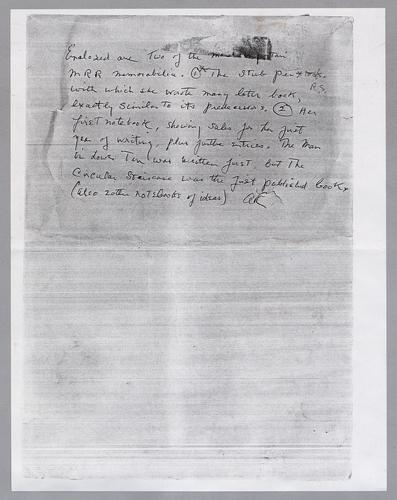 Enclosed are two of the most important
MRR memorabilia. ① The stub pen
R.S.
with which she wrote many later books,
exactly similar to its predecessors. ② Her
first notebook, showing sales for her first
year of writing, plus further entries. The Man
in Lower Ten was written first, but The
Circular Staircase was the first published book.
(Also 2 other notebooks of ideas) AR